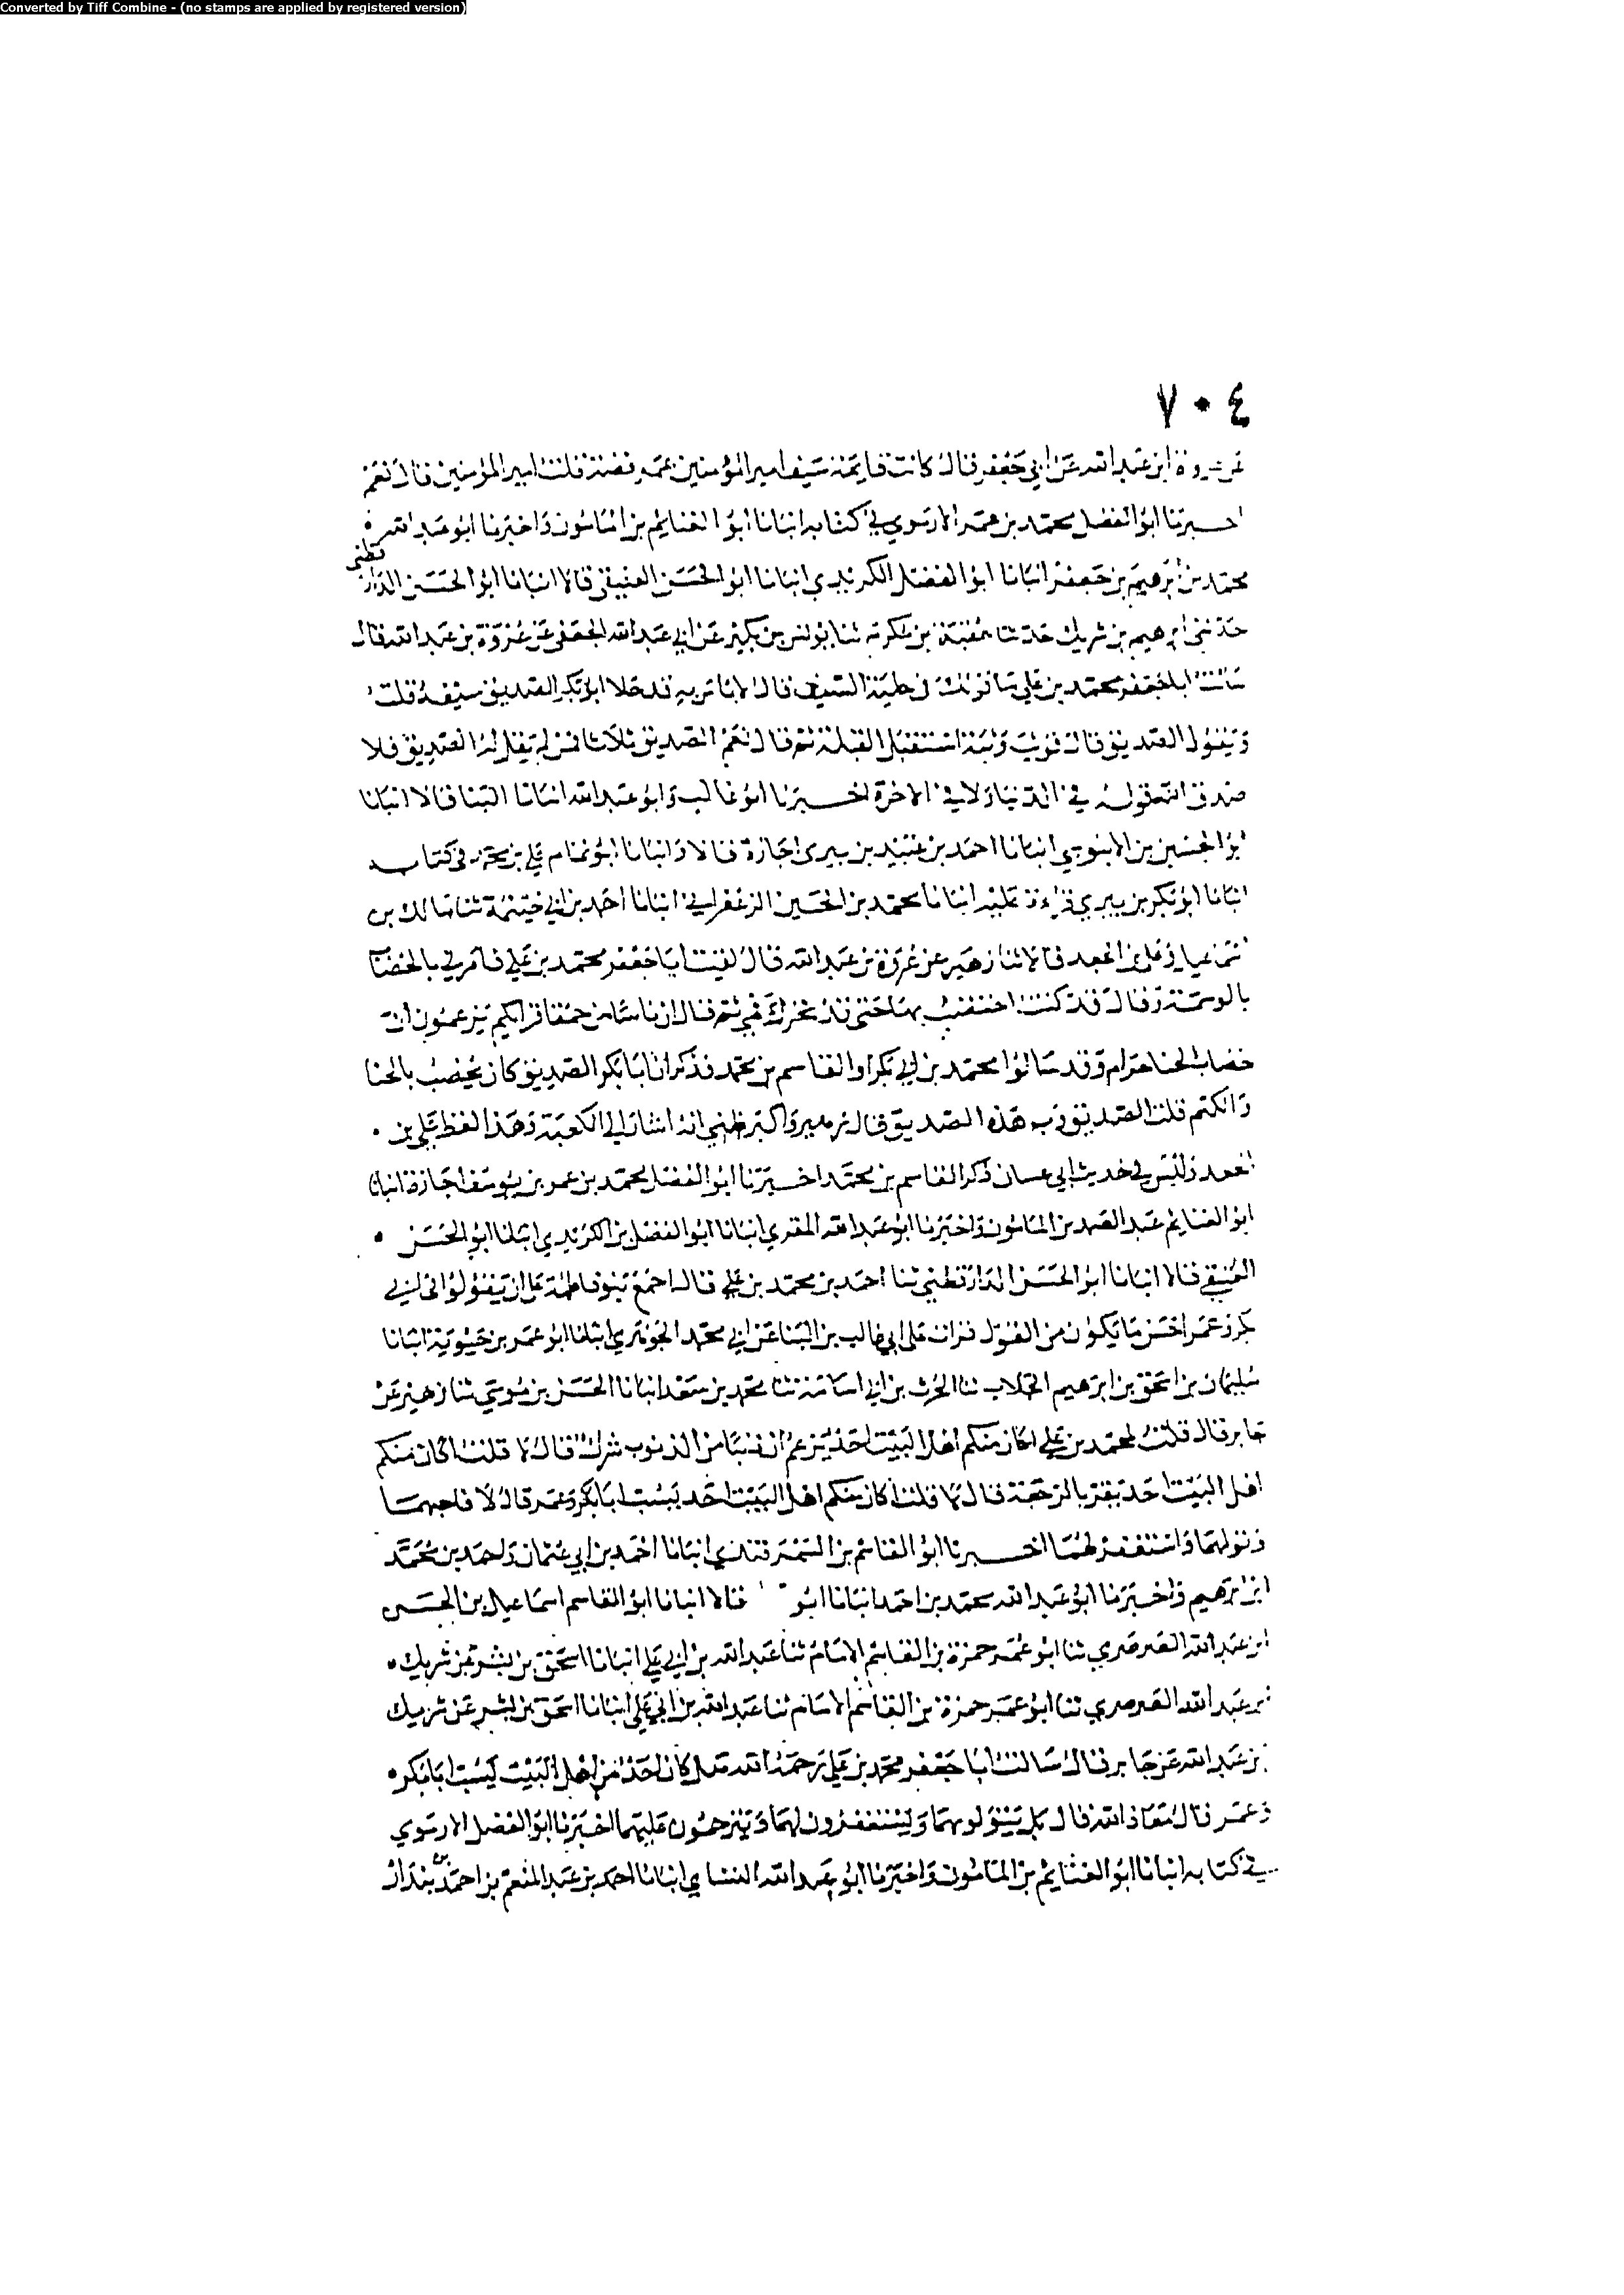 Converted by Tiff Combine - (no stamps are applied by registered version)
٧٠٤
عن عروة ابن عبد الله عن ابي جعفر قال كانت قايمة سيف امير المؤمنين عمر فضة قلت امير المؤمنين قال نعم
اخبرنا ابو الفضل محمد بن عمر الارموي في كتابه انبانا ابو الغنايم بن المامون واخبرنا ابو عبد الله
محمد بن ابرهيم بن جعفر انبانا ابو الفضل الكريدي انبانا ابو الحسن العتيقي قالا انبانا ابو الحسن الدارقطني
حدثني ابرهيم بن شريك حدثنا عقبة بن مكرم ثنا يونس بن بكير عن ابي عبد الله الجعفي عن عروة بن عبد الله قال
سالت ابا جعفر محمد بن علي ما قولك في حلية السيف قال لا باس به قد حلا ابو بكر الصديق سيفه قلت
وتقول الصديق قال فوثب وثبة استقبل القبلة ثم قال نعم الصديق ثلاثا فمن لم يقل له الصديق فلا
صدق الله قوله في الدنيا ولا في الاخرة اخبرنا ابو غالب وابو عبد الله انبانا البنا قالا انبانا
ابو الحسين بن الابنوسي انبانا احمد بن عبيد بن بيري اجازة قالا وانبانا ابو تمام علي بن محمد في كتابه
انبانا ابو بكر بن بيري قراءة عليه انبانا محمد بن الحسين الزعفراني انبانا احمد بن ابي خيثمة ثنا مالك بن
وعلي بن الجعد قالا ثنا زهير عن عروة بن عبد الله قال لقيت ابا جعفر محمد بن علي فامرني بالخضاب
بالوسمة وقال قد كنت اختضب بها حتى قد تحرك فمي ثم قال ان ناسا من حمقا قرائكم يزعمون ان
خضاب الحنا حرام وقد سالوا محمد بن ابي بكر او القاسم بن محمد فذكر ان ابا بكر الصديق كان يخضب بالحنا
والكتم قلت الصديق ورب هذه الصديق قال زهير واكبر ظني انه اشار الى الكعبة وهذا لفظ علي بن
الجعد وليس في حديث ابي غسان ذكر القاسم بن محمد اخبرنا ابو الفضل محمد بن عمر بن يوسف اجازة انبانا
ابو الغنايم عبد الصمد بن المامون واخبرنا ابو عبد الله المقري انبانا ابو الفضل بن الكريدي انبانا ابو الحسن
العتيقي قالا انبانا ابو الحسن الدارقطني ثنا احمد بن محمد بن علي قال اجمع بنو فاطمة على ان يقولوا في ابي
بكر وعمر احسن ما يكون من القول قرات على ابي غالب بن البنا عن ابي محمد الجوهري انبانا ابو عمر بن حيوية انبانا
سليمان بن اسحق بن ابرهيم الجلاب ثنا الحرث بن ابي اسامة ثنا محمد بن سعد انبانا الحسن بن موسى ثنا زهير عن
جابر قال قلت لمحمد بن علي اكان منكم اهل البيت احد يزعم ان ذنبا من الذنوب شرك قال لا قلت اكان منكم
اهل البيت احد يقر بالرجعة قال لا قلت اكان منكم اهل البيت احد يسب ابا بكر وعمر قال لا فاحبهما
وتولهما واستغفر لهما اخبرنا ابو القاسم بن السمرقندي انبانا احمد بن ابي عثمان واحمد بن محمد
ابن ابرهيم واخبرنا ابو عبد الله محمد بن احمد انبانا ابو قالا انبانا ابو القاسم اسماعيل بن الحسن
ابن عبد الله الصرصري ثنا ابو عمر حمزة بن القاسم الامام ثنا عبد الله بن ابي علي انبانا اسحق بن بشر عن شريك
بن عبد الله الصرصري ثنا ابو عمر حمزة بن القاسم الامام ثنا عبد الله بن ابي علي انبانا اسحق بن بشر عن شريك
بن عبد الله عن جابر قال سالت ابا جعفر محمد بن علي رحمه الله هل كان احد من اهل البيت يسب ابا بكر
وعمر قال معاذ الله قال بل يتولونهما ويستغفرون لهما ويترحمون عليهما اخبرنا ابو الفضل الارموي
في كتابه انبانا ابو الغنايم بن المامون واخبرنا ابو عبد الله انبانا احمد بن عبد المنعم بن احمد بن بندار